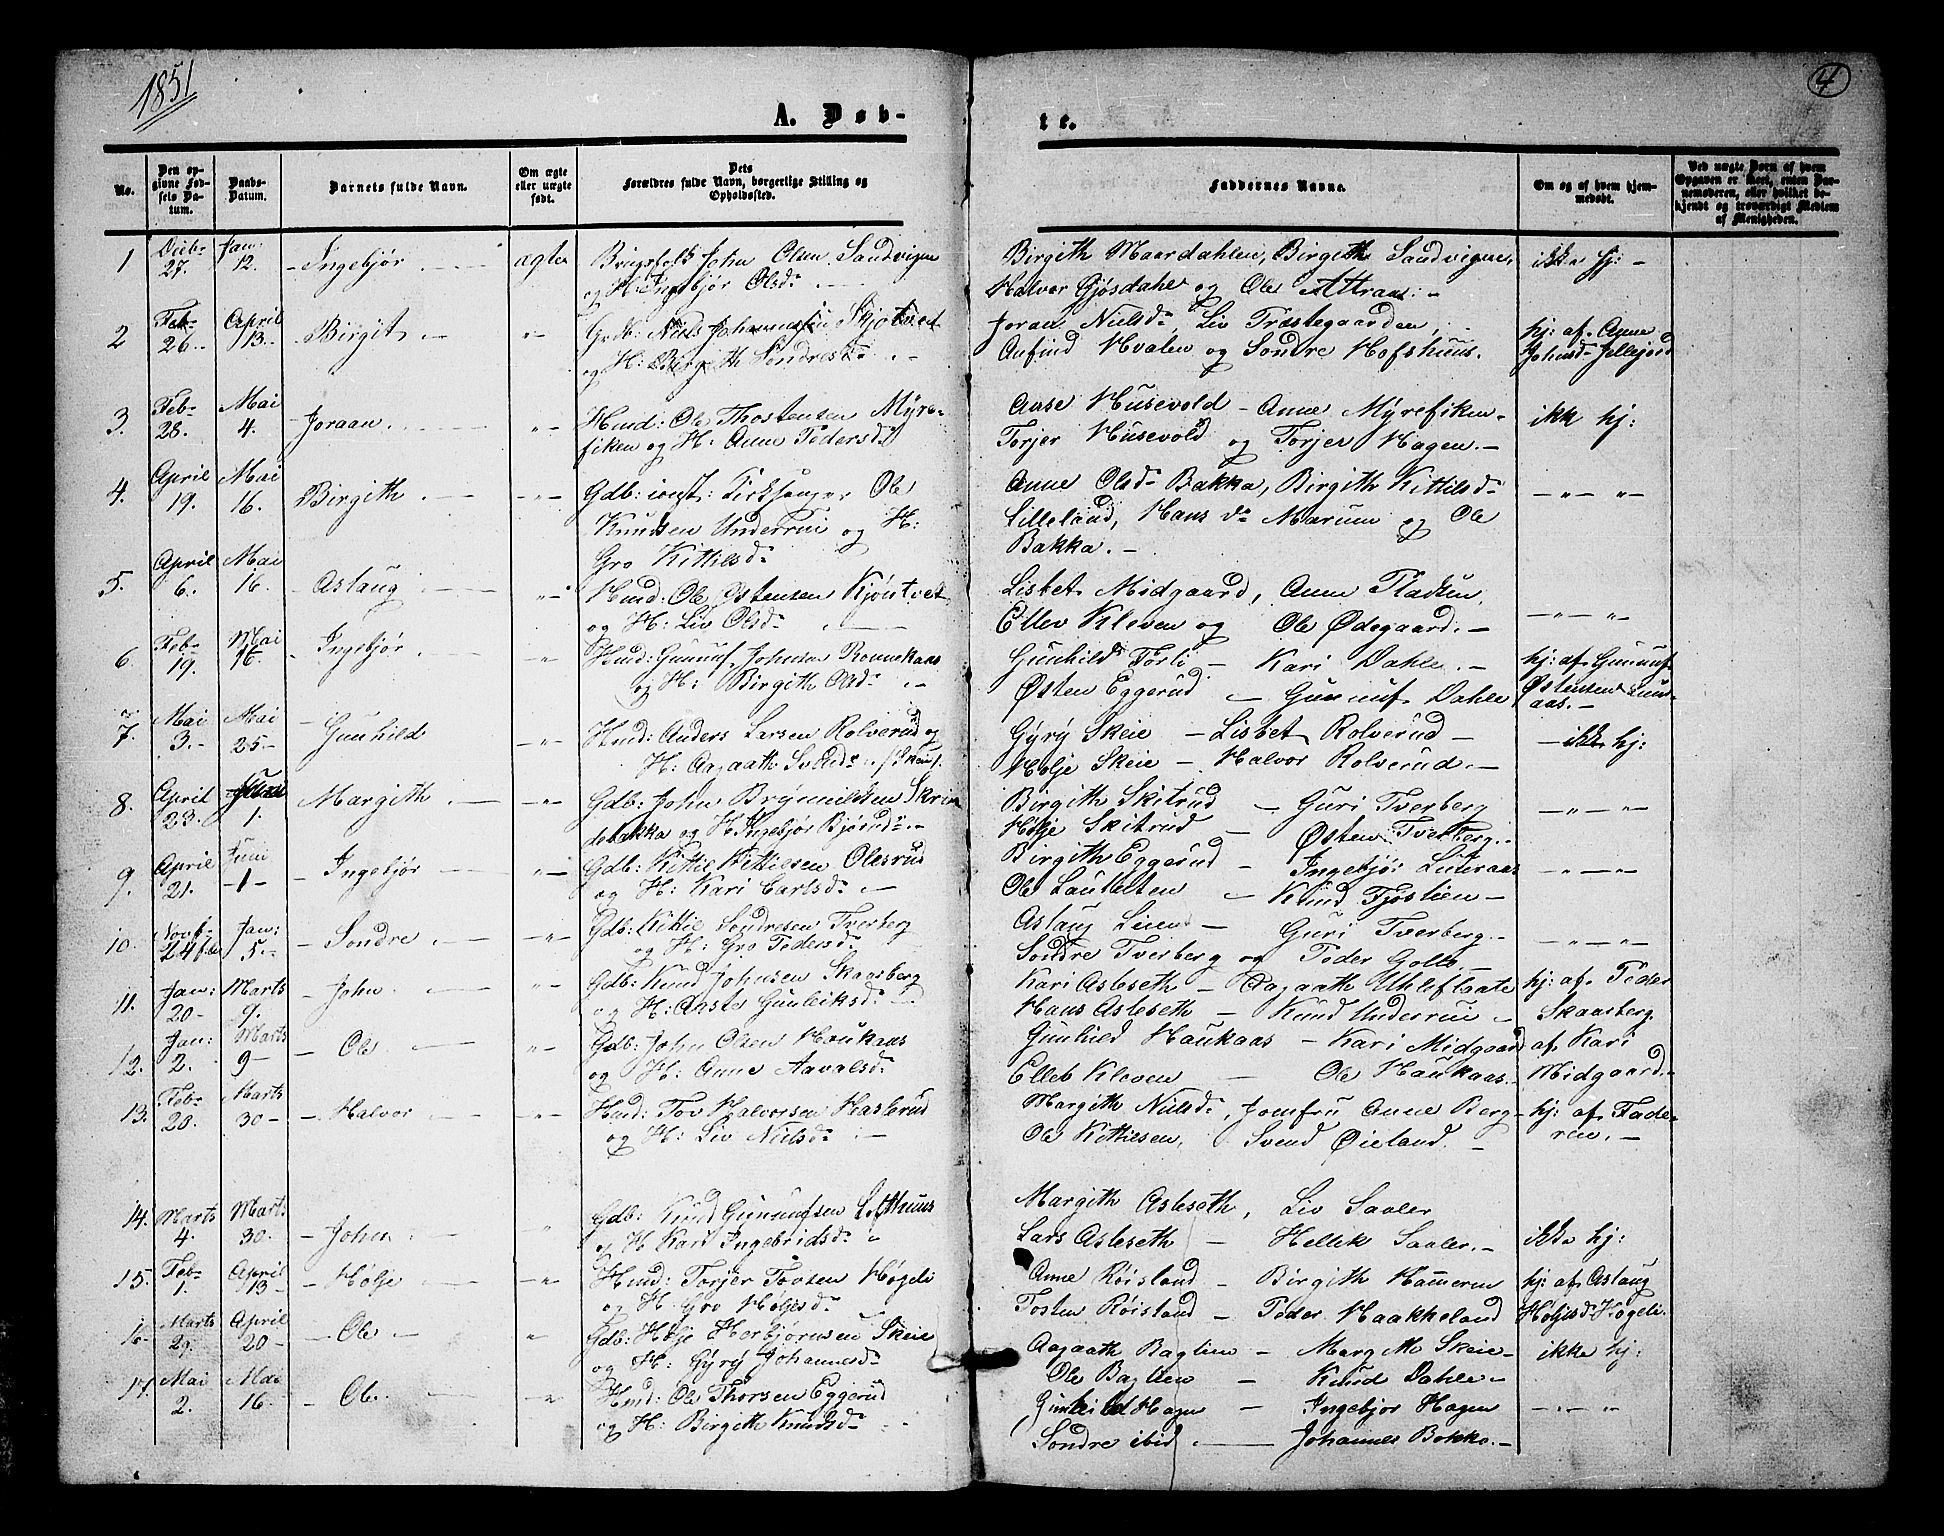 1851
4
A. Døb-
te.
No.
Den op-
givne Fød-
sels Da-
tum.
Daabs-
Datum.
Barnets fulde Navn.
Om ægte
eller uægte
født.
Dets
Forældres fulde Navn, borgerlige Stilling og
Opholdssted.
Faddernes Navne.
Om og af hvem hjem-
medøbt.
Ved uægte Børn af hvem
Opgaven er skeet, enten Bar-
nemoderen, eller hvilket be-
kjendt og troværdigt Medlem
af Menigheden.
1 27. Jan: 12. - Ingebjør. ægte John Olsen Sandvigen
og H: Ingebjør Olsd:
Birgith Maardahlen, Birgith Sandvigen,
Halvor Gjøsdahl og Ole Attraa: -
ikke hj: -
2 Feb: 26. April 13. - Birgit. - " - Gdb: Niels Johannesen Skjøtvedt
og H: Birgith Sondresd:
Joran Nielsd:, Liv Træstegaarden,
Anfind Hvalen og Sondre Hofshuus.
hj: af Anne
Johnsd: Jellejord
3. Feb: 28. Mai 4. - Joraan. - " - Hmd: Ole Thostensen Myre-
fiken og H: Anne Pedersd:
Aase Husevold - Anne Myrefiken -
Torjer Husevold og Torjer Hagen. -
ikk hj:
4. April 19. Mai 16. - Birgith. - " - Gdb: const: Kirksanger Ole
Knudsen Underruu og H:
Gro Kittilsd:
Anne Olsd: Bakka, Birgith Kittilsd:
Lilleland, Hans do Marum og Ole
Bakka. -
- " - "
5. April 6. Mai 16. - Aslaug. " " Hmd: Ole Østensen Kjøntvet
og H: Liv Olsd:
Lisbet Midgaard, Anne Pladsen,
Ellev Kleven og Ole Ødegaard. -
- " - "
6. Feb: 19. Mai 16. - Ingebjør. - " - Hmd: Gunnuf Johnsen Ronnekaas
og H: Birgith Olsd:
Gunhild Førli - Kari Dahle. -
Østen Eggerud - Gunnuf Dahle
hj: af Gunnuf
Østensen Luns-
aas. -
7. Mai 3. - Mai 25 - - Gunhild - " - Hmd: Anders Larsen Rolverud og
H: Aagaath
Gyrý Skeie - Lisbet Rolverud -
Holje Skeie - Halvor Rolverud. -
- ikke hj:
8. April 23. 1. Margith. - " - Gdb: John Brynnildsen Skrin
debakka og H: Ingebjør Bjørnd: -
Birgith Skitrud - Guri Tverberg
Holje Skitrud - Østen Tverberg. -
- " - "
9. April 21. Juni - 1 - - Ingebjør. - " - Gdb: Kittil Kittilsen Olesrud
og H: Kari Carlsd: -
Birgith Eggerud - Ingebjør Luteraas
Ole - Knud Fjøslien -
- " - "
10. Novb: 24 Jan: 5. - Sondre. - " - Gdb: Kittil Sondresen Tverberg
og H: Gro Pedersd:
Aslaug Lien - Guri Tverberg. -
Sondre Tverberg og Peder Golle -
- " - "
11. Jan: 20 - Marts 9. - John. - " - Gdb: Knud Johnsen Skaasberg
og H: Aaste Gunleiksd: -
Kari Asleseth - Aagaath Uhlefllaate
Hans Asleseth - Knud Underruu -
hj: af Peder
Skaasberg
12. Jan: 2. Marts 9 - - Ole. - " - Gdb: John Olsen Haukaas
og H: Anne Aavalsd:
Gunhild Haukaas - Kari Midgaard
Elleb Kleven - Ole Haukaas. -
af Kari
Midgaard. -
13. Feb: 20. Marts 30 - - Halvor. - " - Hmd: Tov Halvorsen Haslerud
og H: Liv Nielsd: -
Margith Nielsd:, Jomfru Anne Berg -
Ole Kittilsen, Svend Øieland. -
hj: af Fade-
ren. -
14. Marts 4. Marts 30. - John. " Gdb: Knud Gunnufsen Lofthuus
og H Kari Ingebridsd: "
Margith Asleseth, Liv Saaler
Lars Asleseth - Hellik Saaler. -
ikke hj:
15. Feb: 1. April 13 - - Holje - " - Hmd: Torjer Tovsen Høgeli
og H: Gro Holjesd: -
Anne Røisland - Birgith Hammeren
Tosten Røisland - Peder Haakkeland
hj: af Aslaug
Holjesd: Høgeli.
16 - Marts 29. April 20 - - Ole - " Gdb: Holje Herbjørnsen Skeie
og H: Gyrý Johannesd:
Aagaath Baglien - Margith Skeie -
Ole Baglien - Knud Dahle -
ikke hj:
17. Mai 2. Mai 16. - Ole. - " - Hmd: Ole Thorsen Eggerud
og H: Birgith Knudsd:
Gunhild Hagen - Ingebjør Hagen
Sondre ibid. - Johannes Bokko. -
- " - "